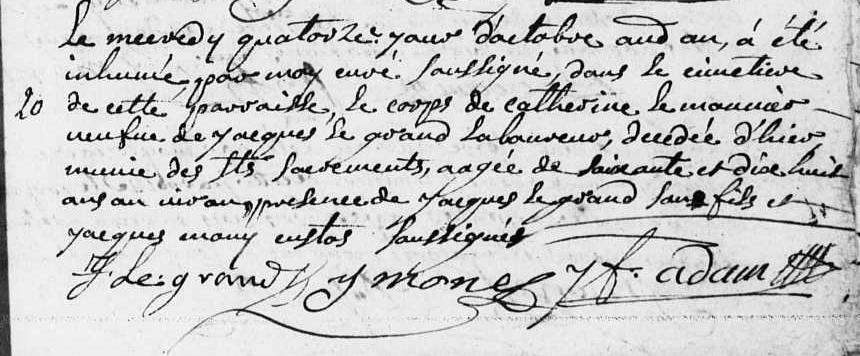 le mercredy quatorze jour d'octobre audt an, a été
inhumée, par moy curé soussigné, dans le cimetiere
20 de cette parroisse, le corps de catherine le maunier
veufve de jacques le grand laboureur, decedée d'hier,
munie des Sts sacrements, aagée de soixante et dix huit
ans environ, presence de jacques le grand son fils et
jacques mony custos soussignés
J le grand J mone J f. adam